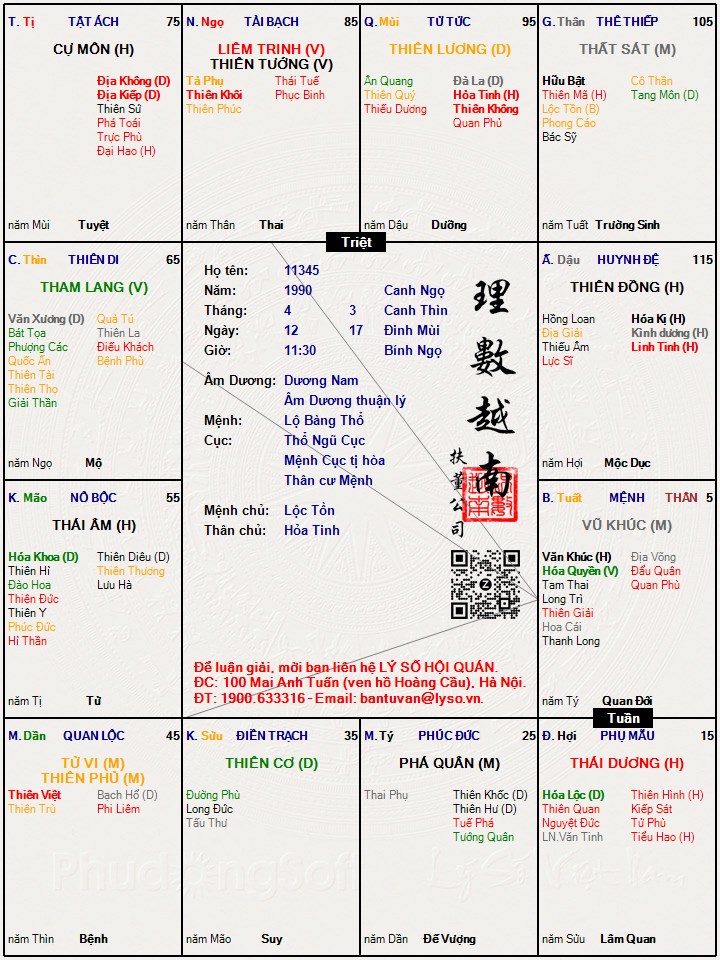 T. Tị TẬT ÁCH 75
CỰ MÔN (H)
Địa Không (D)
Địa Kiếp (D)
Thiên Sứ
Phá Toái
Trực Phù
Đại Hao (H)
năm Mùi Tuyệt
N. Ngọ TÀI BẠCH 85
LIÊM TRINH (V)
THIÊN TƯỚNG (V)
Tả Phụ Thái Tuế
Thiên Khôi Phục Binh
Thiên Phúc
năm Thân Thai
Q. Mùi TỬ TỨC 95
THIÊN LƯƠNG (D)
Ân Quang Đà La (D)
Thiên Quý Hỏa Tinh (H)
Thiếu Dương Thiên Không
Quan Phủ
năm Dậu Dưỡng
G. Thân THÊ THIẾP 105
THẤT SÁT (M)
Hữu Bật Cô Thần
Thiên Mã (H) Tang Môn (D)
Lộc Tồn (B)
Phong Cáo
Bác Sỹ
năm Tuất Trường Sinh
Triệt
C. Thìn THIÊN DI 65
THAM LANG (V)
Văn Xương (D) Quả Tú
Bát Tọa Thiên La
Phượng Các Điếu Khách
Quốc Ấn Bệnh Phù
Thiên Tài
Thiên Thọ
Giải Thần
năm Ngọ Mộ
Họ tên: 11345
Năm: 1990 Canh Ngọ
Tháng: 4 3 Canh Thìn
Ngày: 12 17 Đinh Mùi
Giờ: 11:30 Bính Ngọ
Âm Dương: Dương Nam
Âm Dương thuận lý
Mệnh: Lộ Bàng Thổ
Cục: Thổ Ngũ Cục
Mệnh Cục tị hòa
Thân cư Mệnh
Mệnh chủ: Lộc Tồn
Thân chủ: Hỏa Tinh
理數越南
扶董公司
Để luận giải, mời bạn liên hệ LÝ SỐ HỘI QUÁN.
ĐC: 100 Mai Anh Tuấn (ven hồ Hoàng Cầu), Hà Nội.
ĐT: 1900.633316 - Email: bantuvan@lyso.vn.
Ấ. Dậu HUYNH ĐỆ 115
THIÊN ĐỒNG (H)
Hồng Loan Hóa Kị (H)
Địa Giải Kình dương (H)
Thiếu Âm Linh Tinh (H)
Lực Sĩ
năm Hợi Mộc Dục
K. Mão NÔ BỘC 55
THÁI ÂM (H)
Hóa Khoa (D) Thiên Diêu (D)
Thiên Hỉ Thiên Thương
Đào Hoa Lưu Hà
Thiên Đức
Thiên Y
Phúc Đức
Hỉ Thần
năm Tị Tử
B. Tuất MỆNH THÂN 5
VŨ KHÚC (M)
Văn Khúc (H) Địa Võng
Hóa Quyền (V) Đẩu Quân
Tam Thai Quan Phù
Long Trì
Thiên Giải
Hoa Cái
Thanh Long
năm Tý Quan Đới
Tuần
M. Dần QUAN LỘC 45
TỬ VI (M)
THIÊN PHỦ (M)
Thiên Việt Bạch Hổ (D)
Thiên Trù Phi Liêm
năm Thìn Bệnh
K. Sửu ĐIỀN TRẠCH 35
THIÊN CƠ (D)
Đường Phù
Long Đức
Tấu Thư
năm Mão Suy
M. Tý PHÚC ĐỨC 25
PHÁ QUÂN (M)
Thai Phụ Thiên Khốc (D)
Thiên Hư (D)
Tuế Phá
Tướng Quân
năm Dần Đế Vượng
Đ. Hợi PHỤ MẪU 15
THÁI DƯƠNG (H)
Hóa Lộc (D) Thiên Hình (H)
Thiên Quan Kiếp Sát
Nguyệt Đức Tử Phù
LN.Văn Tinh Tiểu Hao (H)
năm Sửu Lâm Quan
PhudongSoft
Lý Số Việt Nam